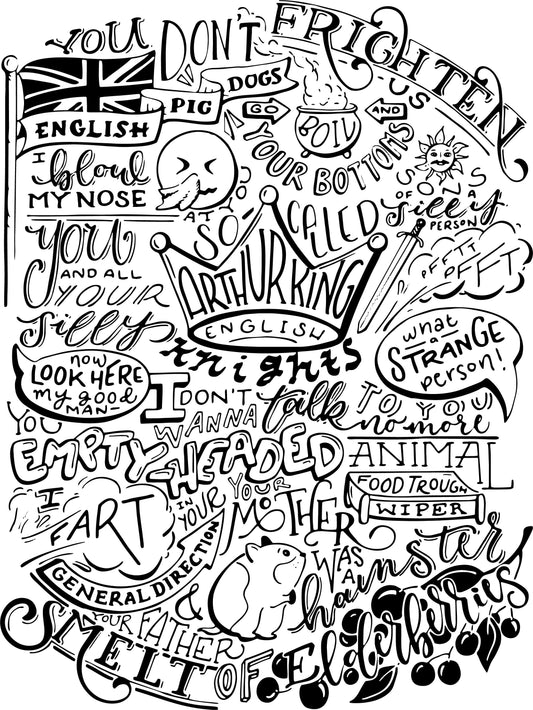 YOU DON'T FRIGHTEN US
ENGLISH PIG DOGS
GO AND
BOIL
YOUR BOTTOMS
SONS
OF A
silly
PERSON
I blow
MY NOSE
AT YOU
SO-CALLED
ARTHUR KING
YOU
AND ALL
YOUR
silly
ENGLISH
knights
PFFT PFFT
what
a
STRANGE
person!
now
LOOK HERE
my good
MAN-
I DON'T
WANNA talk
TO YOU
no more
YOU
EMPTY-HEADED
ANIMAL
FOOD TROUGH
WIPER
I
FART
IN YOUR
GENERAL DIRECTION
YOUR
MOTHER
WAS
A
hamster
&
YOUR FATHER
SMELT OF Elderberries